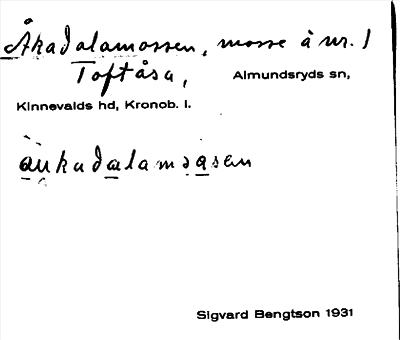 Åkadalamossen, mosse å nr. 1
Toftåsa, Almundsryds sn,
Kinnevalds hd, Kronob. l.
àukadalamsåsen
Sigvard Bengtson 1931